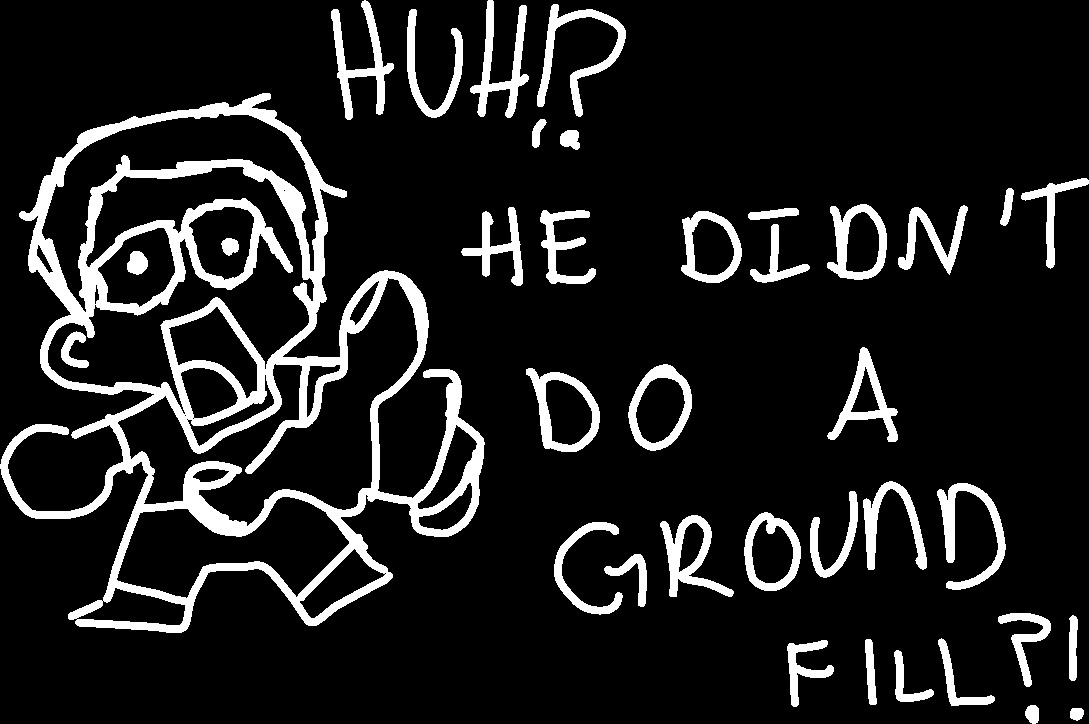 HUH!?
HE DIDN'T
DO A
GROUND
FILL?!